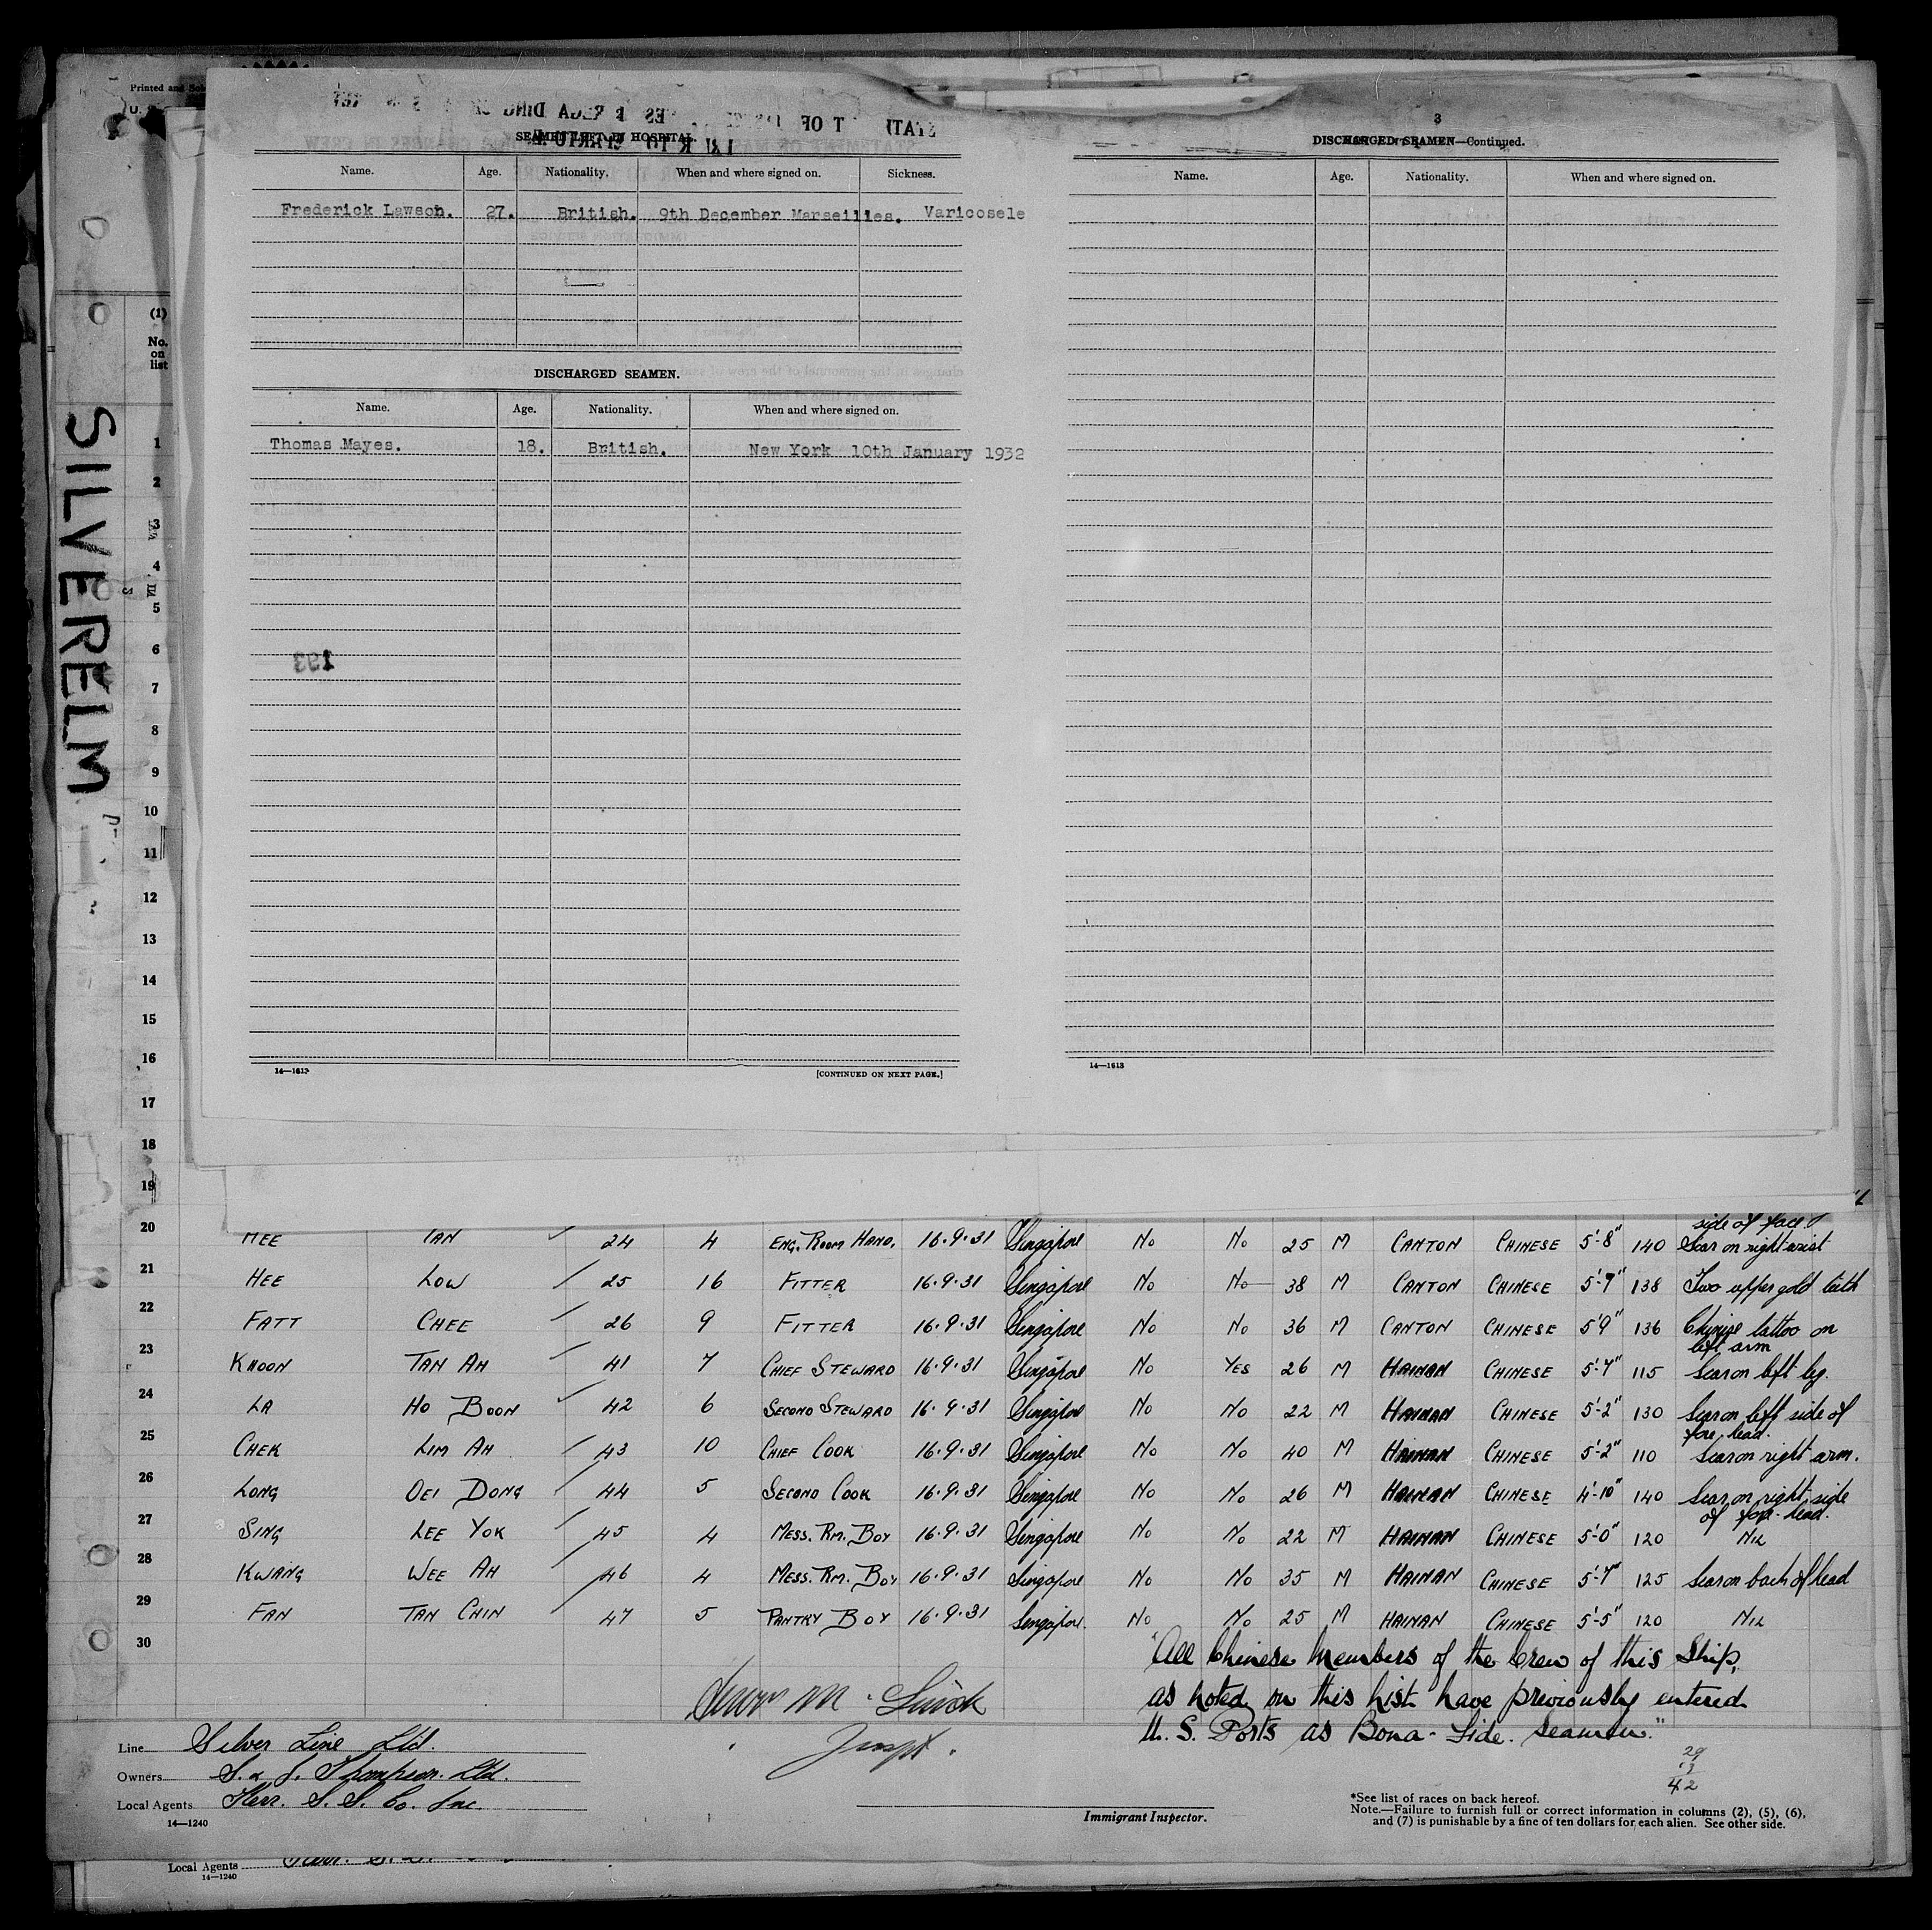 Printed and Sol
SILVERELM
SEAMEN LEFT IN HOSPITAL.
Name. Age. Nationality. When and where signed on. Sickness.
Frederick Lawson. 27. British. 9th December Marseilles. Varicosele
DISCHARGED SEAMEN.
Name. Age. Nationality. When and where signed on.
Thomas Mayes. 18. British. New York 10th January 1932
193
14—1613 [CONTINUED ON NEXT PAGE.]
3
DISCHARGED SEAMEN—Continued.
Name. Age. Nationality. When and where signed on.
14—1613
(1)
No.
on
list
1
2
3
4
5
6
7
8
9
10
11
12
13
14
15
16
17
18
19
side of face
20 HEE TAN 24 4 ENG. ROOM HAND. 16.9.31 Singapore No No 25 M CANTON CHINESE 5'-8" 140 Scar on right wrist
21 HEE LOW 25 16 FITTER 16.9.31 Singapore No No 38 M CANTON CHINESE 5'-7" 138 Two upper gold teeth
22 FATT CHEE 26 9 FITTER 16.9.31 Singapore No No 36 M CANTON CHINESE 5'9" 136 Chinese tattoo on
left arm
23 KHOON TAN AH 41 7 CHIEF STEWARD 16.9.31 Singapore No YES 26 M HAINAN CHINESE 5'-7" 115 Scar on left leg.
24 LA HO BOON 42 6 SECOND STEWARD 16.9.31 Singapore No No 22 M HAINAN CHINESE 5'-2" 130 Scar on left side of
fore head.
25 CHEK LIM AH 43 10 CHIEF COOK 16.9.31 Singapore No No 40 M HAINAN CHINESE 5'-2" 110 Scar on right arm.
26 LONG OEI DONG 44 5 SECOND COOK 16.9.31 Singapore No No 26 M HAINAN CHINESE 4'-10" 140 Scar on right side
of fore-head.
27 SING LEE YOK 45 4 MESS. RM. BOY 16.9.31 Singapore No No 22 M HAINAN CHINESE 5'-0" 120 NIL
28 KWANG WEE AH 46 4 MESS. RM. BOY 16.9.31 Singapore No No 35 M HAINAN CHINESE 5'-7" 125 Scar on back of head
29 FAN TAN CHIN 47 5 PANTRY BOY 16.9.31 Singapore. No No 25 M HAINAN CHINESE 5'-5" 120 NIL
30
"All Chinese Members of the Crew of this Ship,
as noted on this list have previously entered
U. S. Ports as Bona-Fide. seamen."
29
13
42
Line Silver Line Ltd.
Owners S. & J. Thompson. Ltd.
Local Agents Kerr. S. S. Co. Inc.
14—1240
Immigrant Inspector.
*See list of races on back hereof.
Note.—Failure to furnish full or correct information in columns (2), (5), (6),
and (7) is punishable by a fine of ten dollars for each alien. See other side.
Local Agents
14—1240